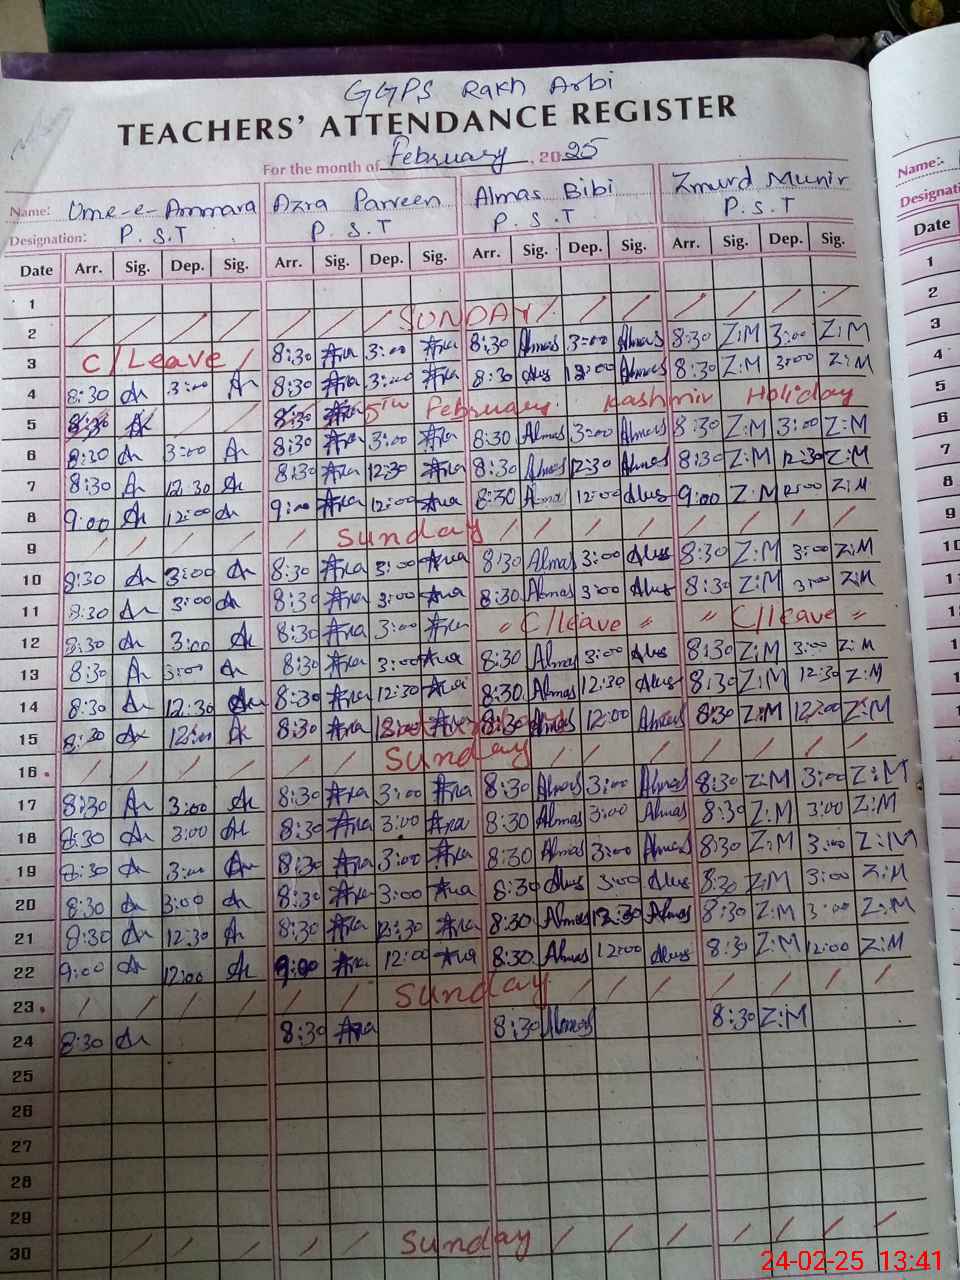 GGPS Rakh Arbi
TEACHERS' ATTENDANCE REGISTER
For the month of February, 2025
Name: Ume-e-Ammara Azra Parveen Almas Bibi Zmurd Munir
Designation: P.S.T P.S.T P.S.T P.S.T
Date Arr. Sig. Dep. Sig. Arr. Sig. Dep. Sig. Arr. Sig. Dep. Sig. Arr. Sig. Dep. Sig.
1
2 / / / / / / / SUNDAY / / / / / / /
3 C/Leave / 8:30 Azra 3:00 Azra 8:30 Almas 3:00 Almas 8:30 Z:M 3:00 Z:M
4 8:30 3:00 8:30 Azra 3:00 Azra 8:30 Almas 12:00 Almas 8:30 Z:M 3:00 Z:M
5 8:30 8:30 5th February Kashmir Holiday
6 8:30 3:00 8:30 Azra 3:00 Azra 8:30 Almas 3:00 Almas 8:30 Z:M 3:00 Z:M
7 8:30 12:30 8:30 Azra 12:30 Azra 8:30 Almas 12:30 Almas 8:30 Z:M 12:30 Z:M
8 9:00 12:00 9:00 Azra 12:00 Azra 8:30 Almas 12:00 Almas 9:00 Z:M 12:00 Z:M
9 / / / / / Sunday / / / / / / / /
10 8:30 3:00 8:30 Azra 3:00 Azra 8:30 Almas 3:00 Almas 8:30 Z:M 3:00 Z:M
11 8:30 3:00 8:30 Azra 3:00 Azra 8:30 Almas 3:00 Almas 8:30 Z:M 3:00 Z:M
12 8:30 3:00 8:30 Azra 3:00 Azra " C/leave " " C/leave "
13 8:30 3:00 8:30 Azra 3:00 Azra 8:30 Almas 3:00 Almas 8:30 Z:M 3:00 Z:M
14 8:30 12:30 8:30 Azra 12:30 Azra 8:30 Almas 12:30 Almas 8:30 Z:M 12:30 Z:M
15 8:30 12:00 8:30 Azra Azra 8:30 Almas 12:00 Almas 8:30 Z:M 12:00 Z:M
16 / / / / / / Sunday / / / / / / /
17 8:30 3:00 8:30 Azra 3:00 Azra 8:30 Almas 3:00 Almas 8:30 Z:M 3:00 Z:M
18 8:30 3:00 8:30 Azra 3:00 Azra 8:30 Almas 3:00 Almas 8:30 Z:M 3:00 Z:M
19 8:30 3:00 8:30 Azra 3:00 Azra 8:30 Almas 3:00 Almas 8:30 Z:M 3:00 Z:M
20 8:30 3:00 8:30 Azra 3:00 Azra 8:30 Almas 3:00 Almas 8:30 Z:M 3:00 Z:M
21 8:30 12:30 8:30 Azra 12:30 Azra 8:30 Almas 12:30 Almas 8:30 Z:M 3:00 Z:M
22 9:00 12:00 9:00 Azra 12:00 Azra 8:30 Almas 12:00 Almas 8:30 Z:M 12:00 Z:M
23 / / / / / / Sunday / / / / / / /
24 8:30 8:30 Azra 8:30 Almas 8:30 Z:M
25
26
27
28
29
30 / / / / / Sunday / / / / / / /
Name:-
Designati
Date
1
2
3
4
5
6
7
8
9
10
11
12
24-02-25 13:41